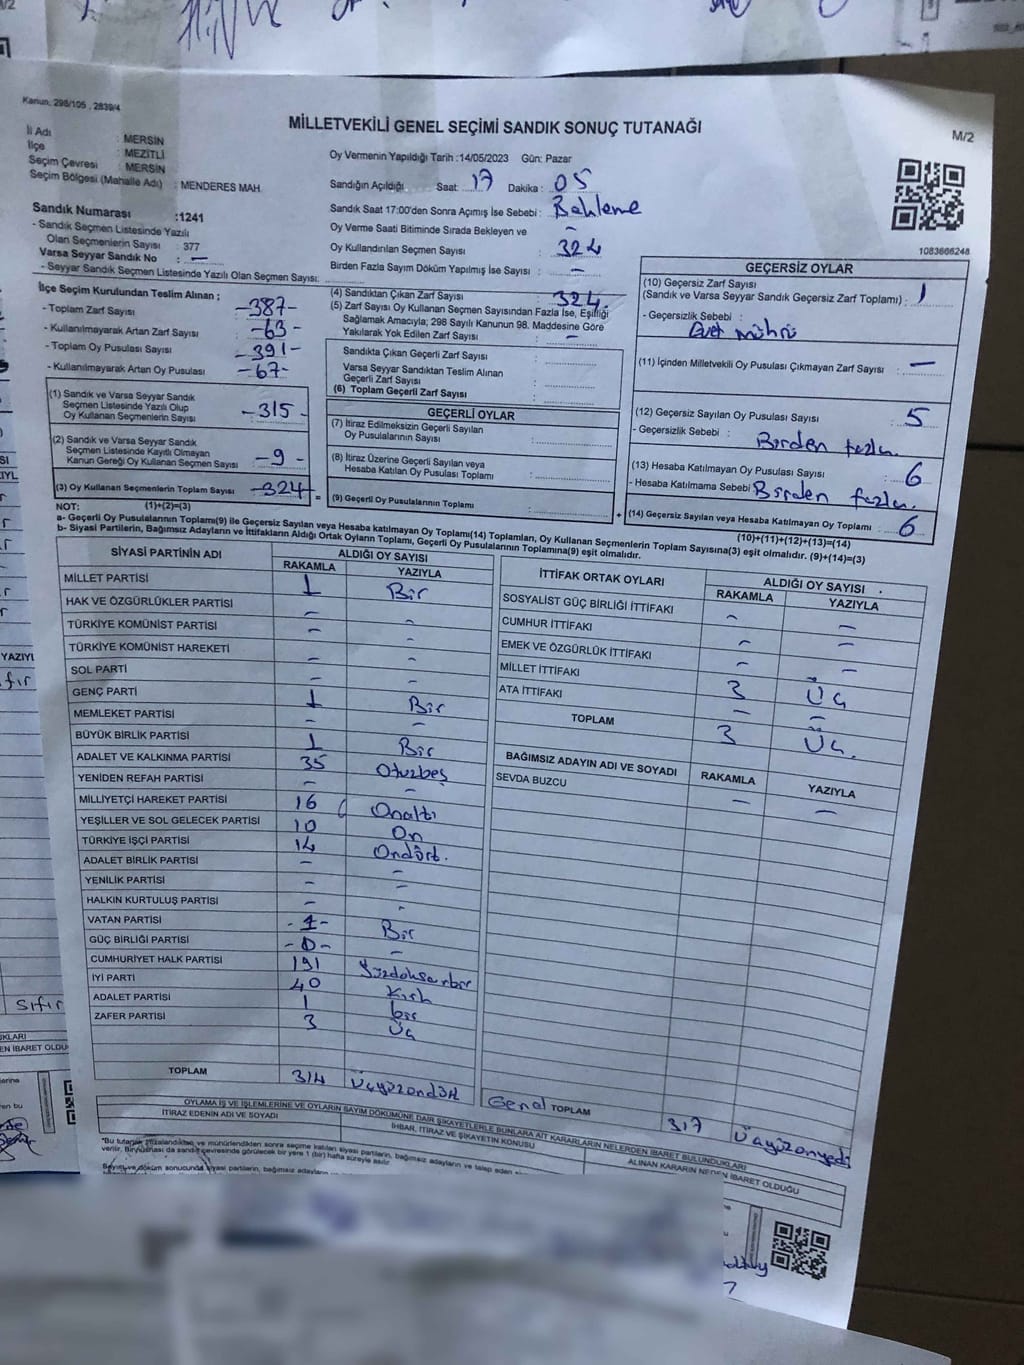 Kanun, 298/105 , 2839/4
MİLLETVEKİLİ GENEL SEÇİMİ SANDIK SONUÇ TUTANAĞI
M/2
İl Adı : MERSİN
İlçe : MEZİTLİ
Seçim Çevresi : MERSİN
Seçim Bölgesi (Mahalle Adı) : MENDERES MAH.
Sandık Numarası :1241
- Sandık Seçmen Listesinde Yazılı
Olan Seçmenlerin Sayısı : 377
Varsa Seyyar Sandık No : —
- Seyyar Sandık Seçmen Listesinde Yazılı Olan Seçmen Sayısı:
Oy Vermenin Yapıldığı Tarih :14/05/2023 Gün: Pazar
Sandığın Açıldığı Saat: 17 Dakika : 05
Sandık Saat 17:00'den Sonra Açımış İse Sebebi : Bekleme
Oy Verme Saati Bitiminde Sırada Bekleyen ve
Oy Kullandırılan Seçmen Sayısı : 324
Birden Fazla Sayım Döküm Yapılmış İse Sayısı : —
1083666248
İlçe Seçim Kurulundan Teslim Alınan ;
- Toplam Zarf Sayısı -387-
- Kullanılmayarak Artan Zarf Sayısı -63-
- Toplam Oy Pusulası Sayısı -391-
- Kullanılmayarak Artan Oy Pusulası -67-
(1) Sandık ve Varsa Seyyar Sandık
Seçmen Listesinde Yazılı Olup
Oy Kullanan Seçmenlerin Sayısı -315-
(2) Sandık ve Varsa Seyyar Sandık
Seçmen Listesinde Kayıtlı Olmayan
Kanun Gereği Oy Kullanan Seçmen Sayısı -9-
(3) Oy Kullanan Seçmenlerin Toplam Sayısı -324-
(1)+(2)=(3)
(4) Sandıktan Çıkan Zarf Sayısı : 324.
(5) Zarf Sayısı Oy Kullanan Seçmen Sayısından Fazla İse, Eşitliği
Sağlamak Amacıyla; 298 Sayılı Kanunun 98. Maddesine Göre
Yakılarak Yok Edilen Zarf Sayısı : —
Sandıkta Çıkan Geçerli Zarf Sayısı :
Varsa Seyyar Sandıktan Teslim Alınan
Geçerli Zarf Sayısı :
(6) Toplam Geçerli Zarf Sayısı :
GEÇERLİ OYLAR
(7) İtiraz Edilmeksizin Geçerli Sayılan
Oy Pusulalarının Sayısı :
(8) İtiraz Üzerine Geçerli Sayılan veya
Hesaba Katılan Oy Pusulası Toplamı :
(9) Geçerli Oy Pusulalarının Toplamı :
GEÇERSİZ OYLAR
(10) Geçersiz Zarf Sayısı
(Sandık ve Varsa Seyyar Sandık Geçersiz Zarf Toplamı) : 1
- Geçersizlik Sebebi :
Evet mührü
(11) İçinden Milletvekili Oy Pusulası Çıkmayan Zarf Sayısı : —
(12) Geçersiz Sayılan Oy Pusulası Sayısı : 5
- Geçersizlik Sebebi : Birden fazla.
(13) Hesaba Katılmayan Oy Pusulası Sayısı : 6
- Hesaba Katılmama Sebebi : Birden fazla.
(14) Geçersiz Sayılan veya Hesaba Katılmayan Oy Toplamı : 6
(10)+(11)+(12)+(13)=(14)
NOT:
a- Geçerli Oy Pusulalarının Toplamı(9) ile Geçersiz Sayılan veya Hesaba katılmayan Oy Toplamı(14) Toplamları, Oy Kullanan Seçmenlerin Toplam Sayısına(3) eşit olmalıdır. (9)+(14)=(3)
b- Siyasi Partilerin, Bağımsız Adayların ve İttifakların Aldığı Oy Ortak Oyların Toplamı, Geçerli Oy Pusulalarının Toplamına(9) eşit olmalıdır.
SİYASİ PARTİNİN ADI ALDIĞI OY SAYISI
RAKAMLA YAZIYLA
MİLLET PARTİSİ 1 Bir
HAK VE ÖZGÜRLÜKLER PARTİSİ — —
TÜRKİYE KOMÜNİST PARTİSİ — —
TÜRKİYE KOMÜNİST HAREKETİ — —
SOL PARTİ — —
GENÇ PARTİ 1 Bir
MEMLEKET PARTİSİ — —
BÜYÜK BİRLİK PARTİSİ 1 Bir
ADALET VE KALKINMA PARTİSİ 35 Otuzbeş
YENİDEN REFAH PARTİSİ — —
MİLLİYETÇİ HAREKET PARTİSİ 16 Onaltı
YEŞİLLER VE SOL GELECEK PARTİSİ 10 On
TÜRKİYE İŞÇİ PARTİSİ 14 Ondört.
ADALET BİRLİK PARTİSİ — —
YENİLİK PARTİSİ — —
HALKIN KURTULUŞ PARTİSİ — —
VATAN PARTİSİ -1- Bir
GÜÇ BİRLİĞİ PARTİSİ -0- —
CUMHURİYET HALK PARTİSİ 191 Yüzdoksanbir
İYİ PARTİ 40 Kırk
ADALET PARTİSİ 1 bir
ZAFER PARTİSİ 3 Üç
TOPLAM 314 Üçyüzondört
İTTİFAK ORTAK OYLARI ALDIĞI OY SAYISI
RAKAMLA YAZIYLA
SOSYALİST GÜÇ BİRLİĞİ İTTİFAKI — —
CUMHUR İTTİFAKI — —
EMEK VE ÖZGÜRLÜK İTTİFAKI — —
MİLLET İTTİFAKI 3 Üç
ATA İTTİFAKI — —
TOPLAM 3 Üç.
BAĞIMSIZ ADAYIN ADI VE SOYADI RAKAMLA YAZIYLA
SEVDA BUZCU — —
Genel TOPLAM 317 Üçyüzonyedi
OYLAMA İŞ VE İŞLEMLERİNE VE OYLARIN SAYIM DÖKÜMÜNE DAİR ŞİKAYETLERLE BUNLARA AİT KARARLARIN NELERDEN İBARET BULUNDUKLARI
İTİRAZ EDENİN ADI VE SOYADI İHBAR, İTİRAZ VE ŞİKAYETİN KONUSU ALINAN KARARIN NEDEN İBARET OLDUĞU
YAZIYL
Sıfır